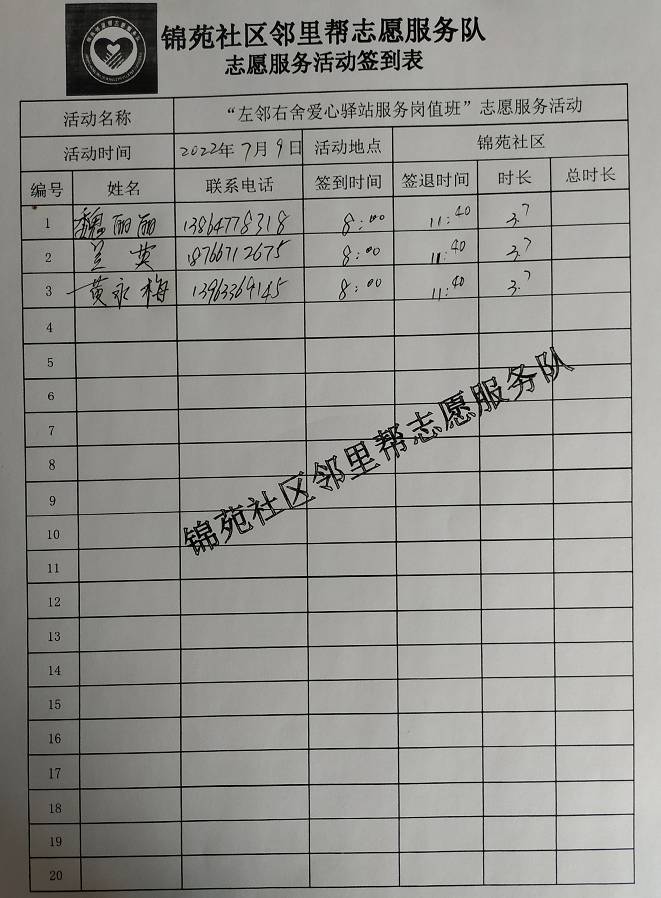 锦苑社区邻里帮志愿服务队
志愿服务活动签到表
活动名称 “左邻右舍爱心驿站服务岗值班”志愿服务活动
活动时间 2022年7月9日 活动地点 锦苑社区
编号 姓名 联系电话 签到时间 签退时间 时长 总时长
1 魏丽丽 13864778318 8:00 11:40 3.7
2 兰英 18766712675 8:00 11:40 3.7
3 黄永梅 13963369145 8:00 11:40 3.7
4
5
6
7
8
9
10
11
12
13
14
15
16
17
18
19
20
锦苑社区邻里帮志愿服务队